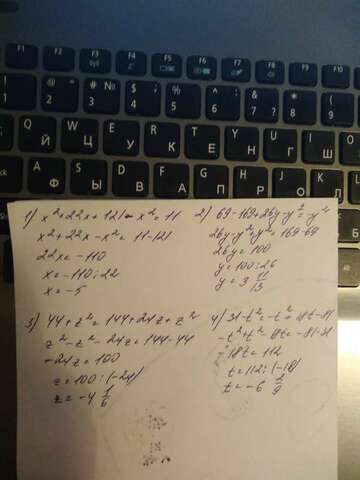 F1 F2 F3 F4 F5 F6 F7 F8 F9 F10
! 1 @ 2 # № 3 $ ; 4 % 5 ^ : 6 & ? 7 * 8 ( 9
Q Й W Ц E У R К T Е Y Н U Г I Ш O
1) x²+22x+121-x²=11
x²+22x-x²=11-121
22x=-110
x=-110:22
x=-5
2) 69-169+26y-y²=-y²
26y-y²+y²=169-69
26y=100
y=100:26
y=3 11/13
3) 44+z²=144+24z+z²
z²-z²-24z=144-44
-24z=100
z=100:(-24)
z=-4 1/6
4) 31-t²=-t²+18t-81
-t²+t²-18t=-81-31
-18t=112
t=112:(-18)
t=-6 2/9